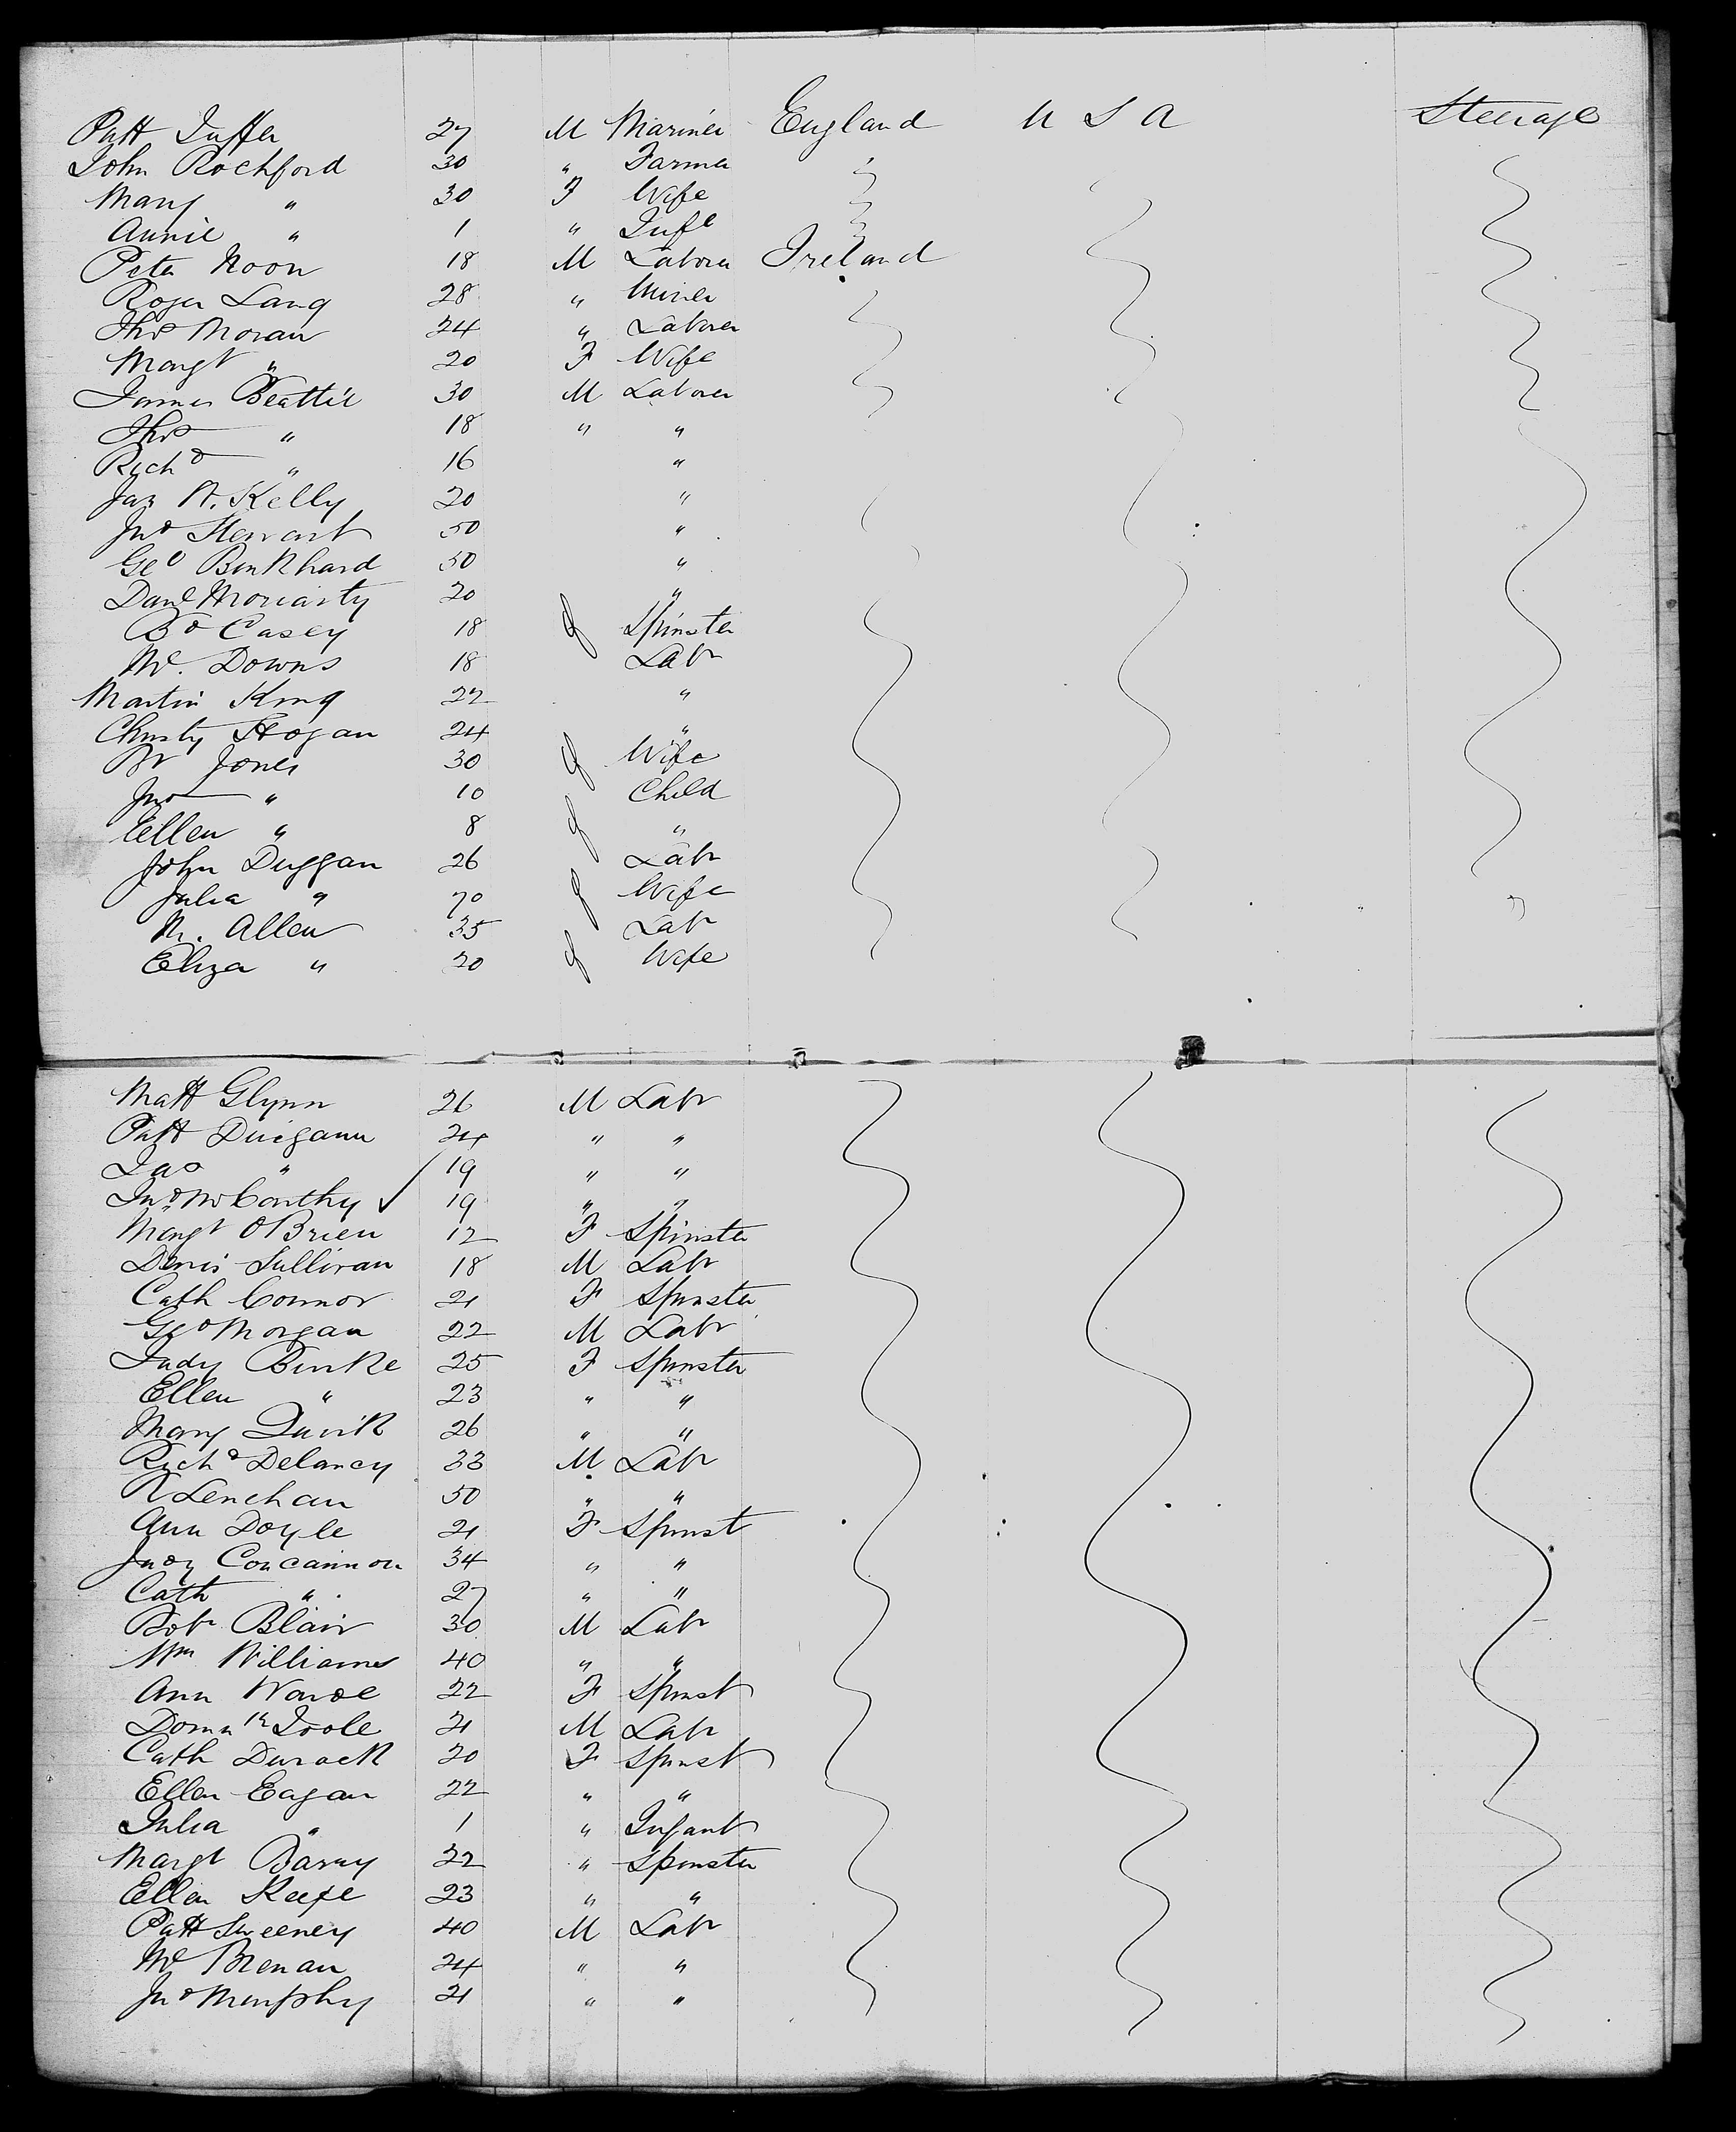 Patt Duffer 27 M Mariner England U S A Steerage
John Rochford 30 " Farmer
Mary " 30 F Wife
Annie " 1 " Inft
Peter Noon 18 M Laborer Ireland
Roger Lang 28 " Miner
Thos Moran 24 " Laborer
Margt " 20 F Wife
James Beattie 30 M Laborer
Thos " 18 " "
Richd " 16 "
Jas W. Kelly 20 "
Jno Stewart 50 "
Geo Burkhard 50 "
Danl Moriarty 20 "
Bd Casey 18 f Spinster
Ml. Downs 18 Labr
Martin King 22 "
Christy Hogan 24 "
Br Jones 30 f Wife
Jno " 10 Child
Ellen " 8 f "
John Duggan 26 Labr
Julia " 20 f Wife
M. Allen 35 Labr
Eliza " 20 f Wife
Matt Glynn 26 M Labr
Patt Duigann 24 " "
Jas " 19 " "
Jno McCarthy 19 " "
Margt OBrien 12 F Spinster
Denis Sullivan 18 M Labr
Cath Connor 21 F Spinster
Geo Morgan 22 M Labr
Judy Burke 25 F Spinster
Ellen " 23 " "
Mary Quirk 26 " "
Richd Delancy 33 M Labr
R Lenehan 50 " "
Ann Doyle 21 F Spinst
Judy Concannon 34 " "
Cath " 27 " "
Robt Blair 30 M Labr
Wm Williams 40 " "
Ann Warde 22 F Spinst
Domnk Toole 21 M Labr
Cath Durack 20 F Spinst
Ellen Eagan 22 " "
Julia " 1 " Infant
Margt Barry 22 " Spinster
Ellen Keefe 23 " "
Patt Sweeney 40 M Labr
Ml Brenan 24 " "
Jno Murphy 21 " "